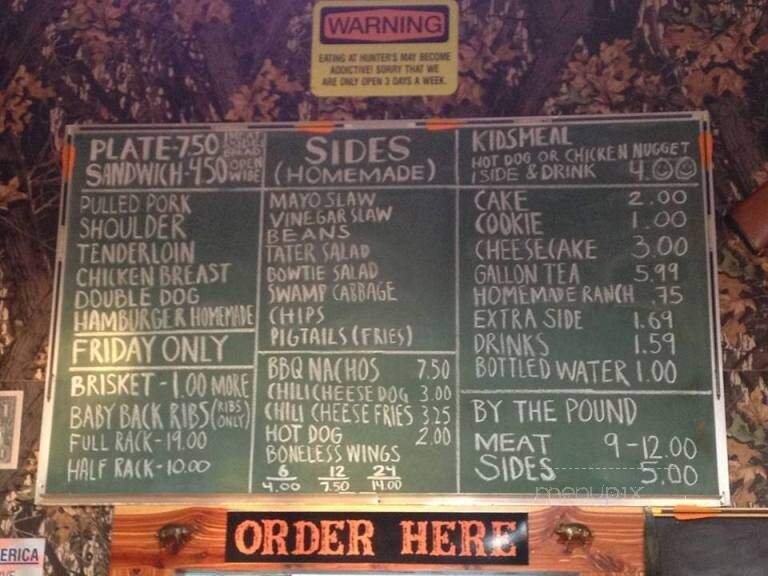 WARNING
EATING AT HUNTER'S MAY BECOME
ADDICTIVE! SORRY THAT WE
ARE ONLY OPEN 3 DAYS A WEEK.
PLATE-7.50
SANDWICH-4.50
PULLED PORK
SHOULDER
TENDERLOIN
CHICKEN BREAST
DOUBLE DOG
HAMBURGER HOMEMADE
FRIDAY ONLY
BRISKET - 1.00 MORE
BABY BACK RIBS (RIBS ONLY)
FULL RACK - 19.00
HALF RACK - 10.00
SIDES
(HOMEMADE)
MAYO SLAW
VINEGAR SLAW
BEANS
TATER SALAD
BOWTIE SALAD
SWAMP CABBAGE
CHIPS
PIGTAILS (FRIES)
BBQ NACHOS 7.50
CHILI CHEESE DOG 3.00
CHILI CHEESE FRIES 3.25
HOT DOG 2.00
BONELESS WINGS
6 12 24
4.00 7.50 14.00
KIDSMEAL
HOT DOG OR CHICKEN NUGGET
1 SIDE & DRINK 4.00
CAKE 2.00
COOKIE 1.00
CHEESECAKE 3.00
GALLON TEA 5.99
HOMEMADE RANCH .75
EXTRA SIDE 1.69
DRINKS 1.59
BOTTLED WATER 1.00
BY THE POUND
MEAT 9-12.00
SIDES 5.00
menupix
ORDER HERE
ERICA